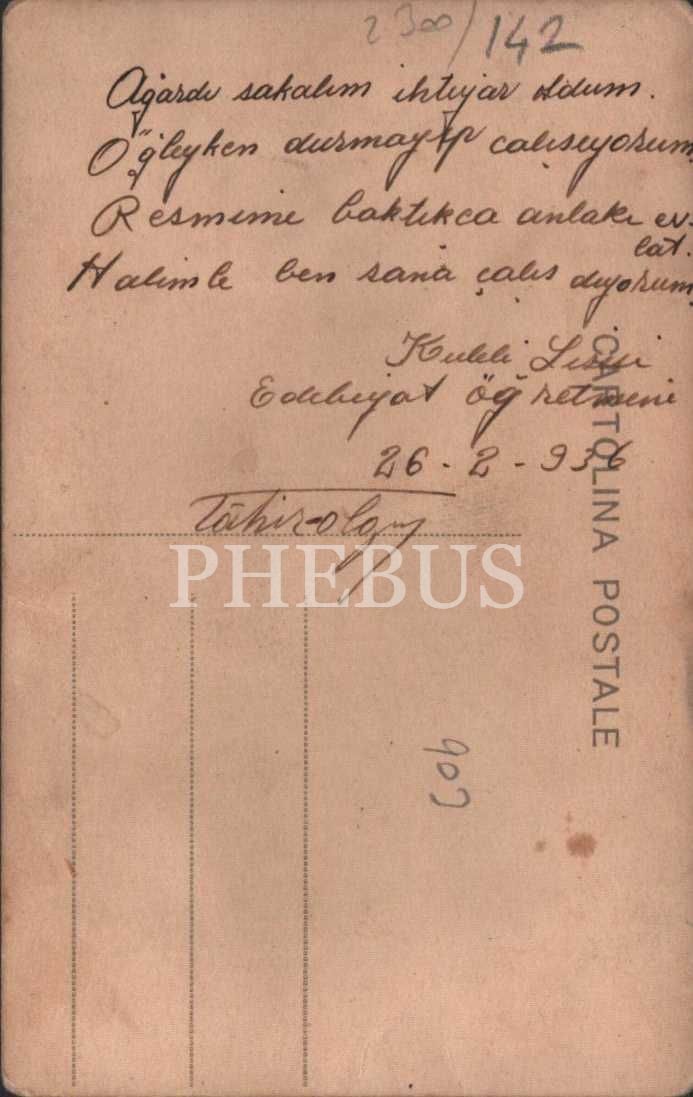 2300/142
Ağardı sakalım ihtiyar oldum.
Öğleyken durmayıp calısıyorum,
Resmime baktıkca anlaki ev-
lat.
Halimle ben sana çalıs diyorum,
Kuleli Lisesi
Edebiyat öğretmeni
26-2-936
Tâhir-olgun
CARTOLINA POSTALE
PHEBUS
903